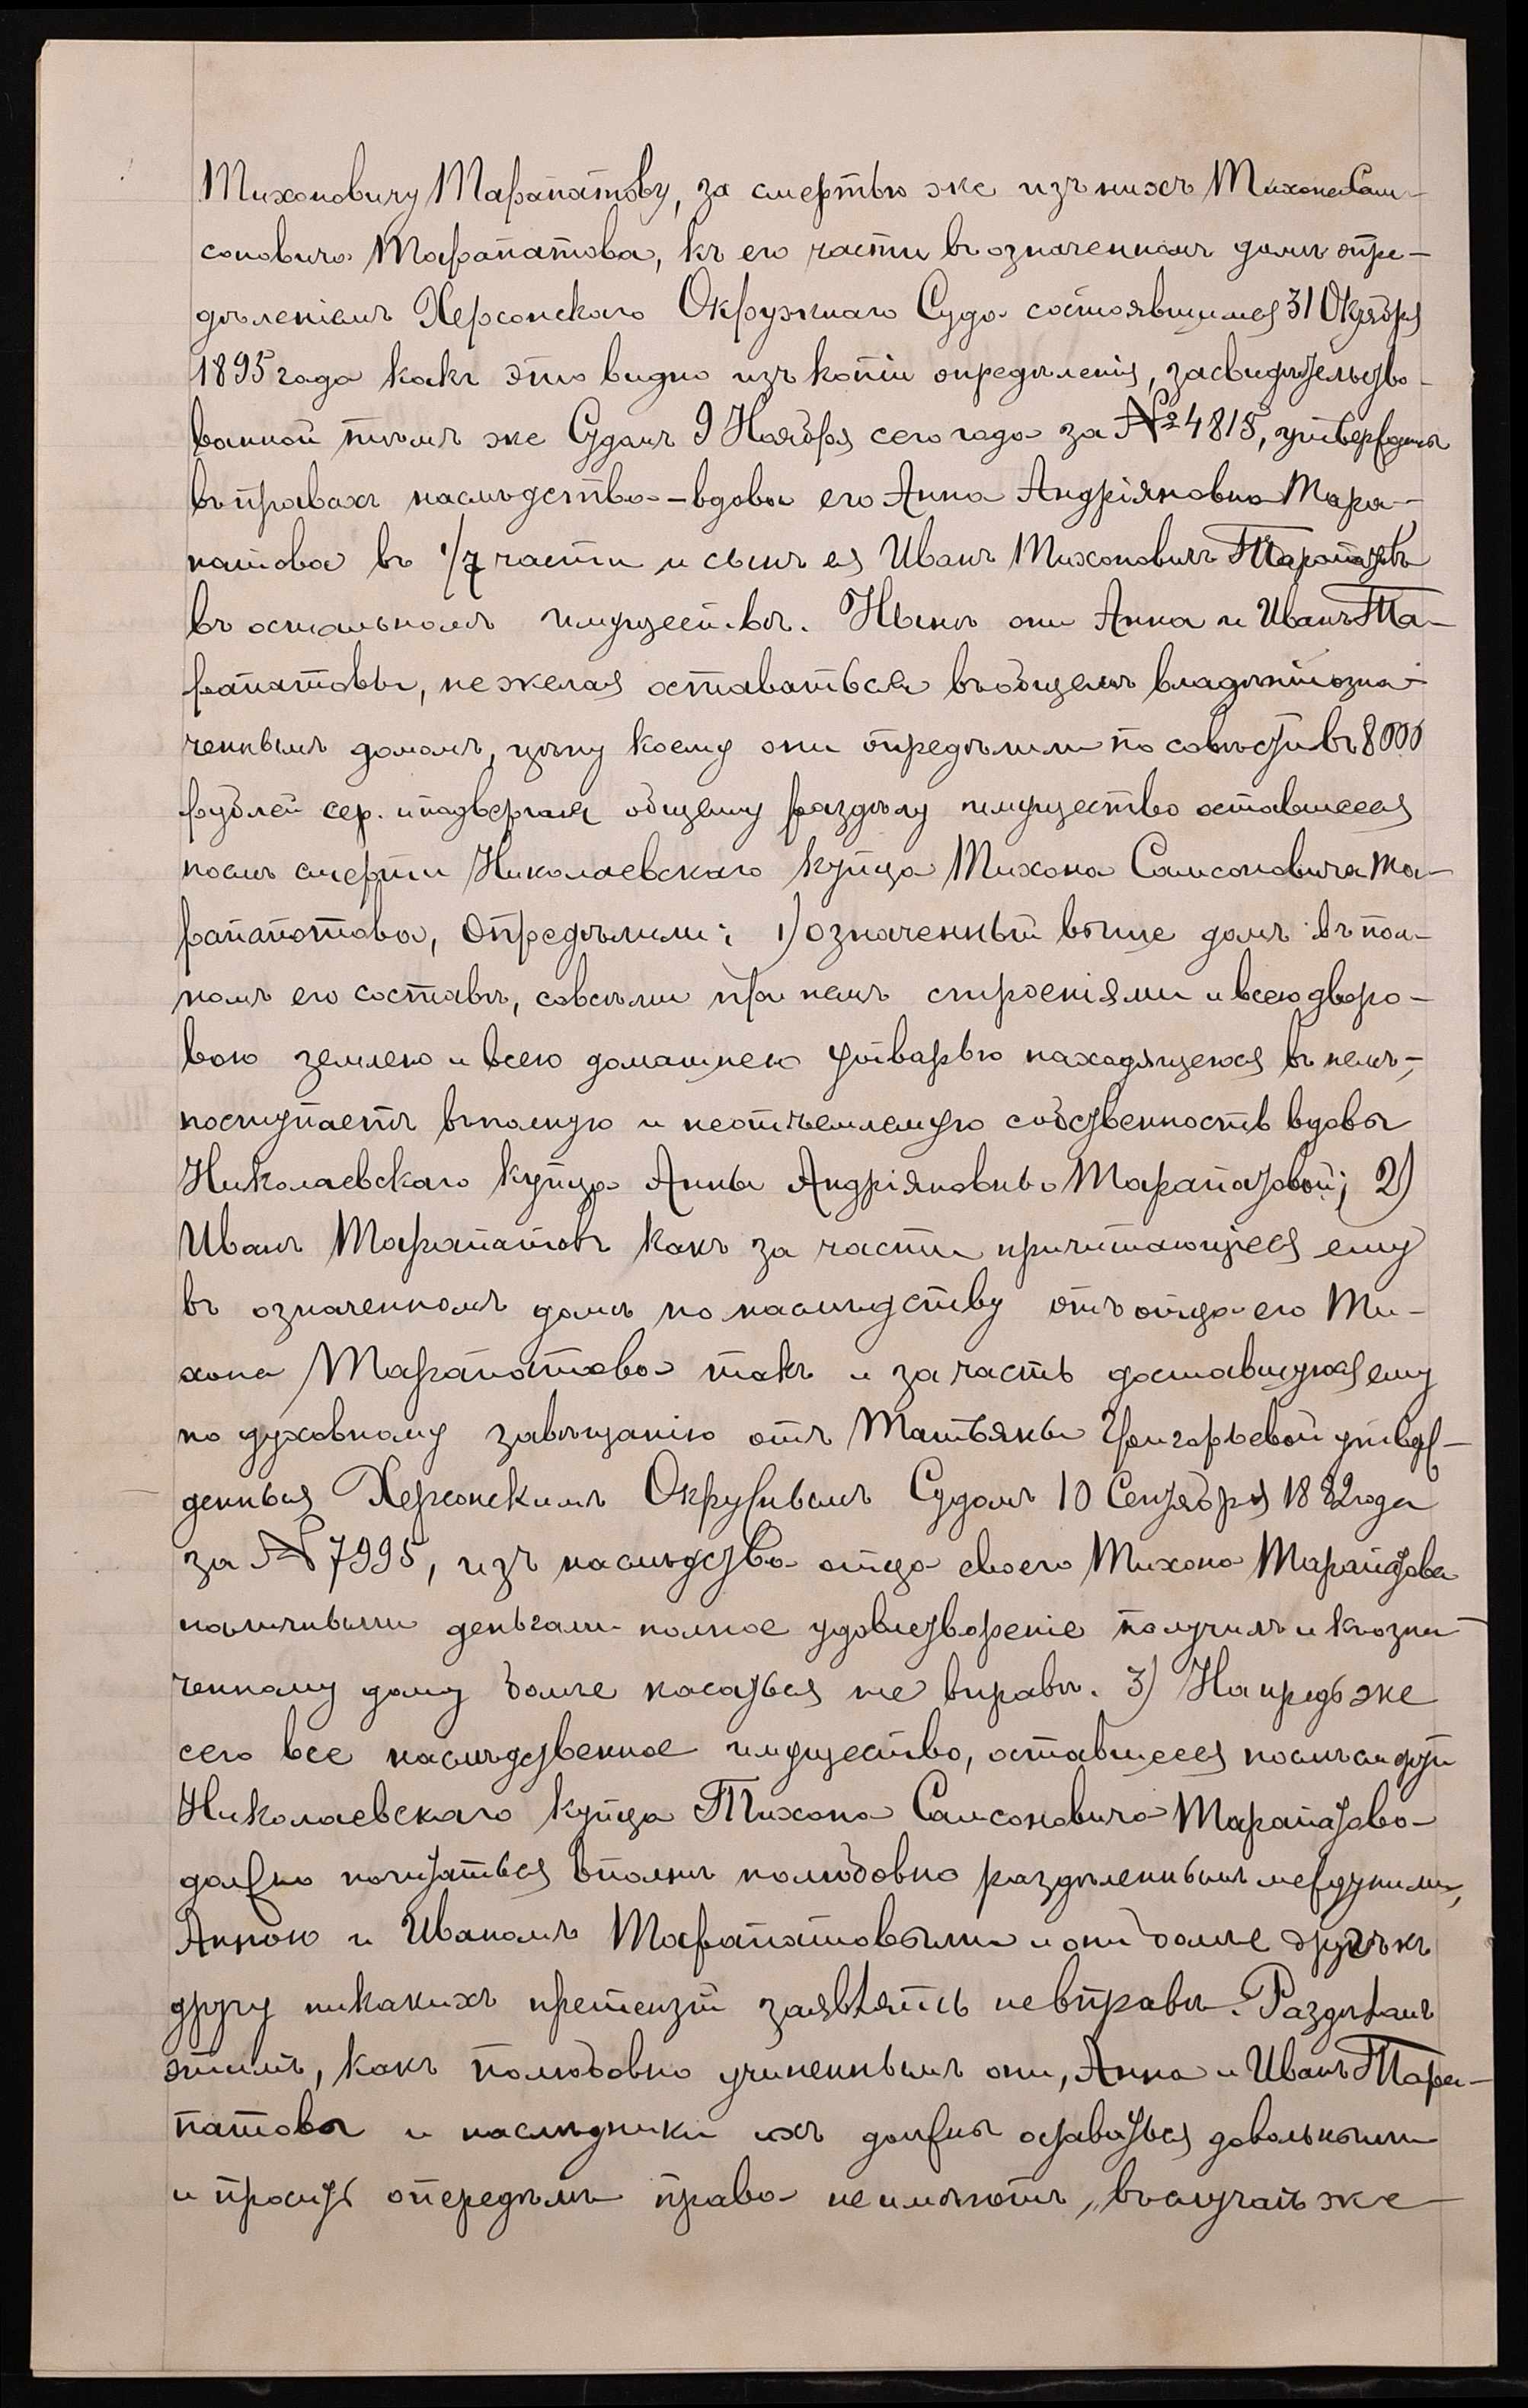 Тихоновичу Тарапатову, за смертью же изъ нихъ Тихона Сам-
соновича Тарапатова, къ его части въ означенномъ домѣ опре-
дѣленіемъ Херсонскаго Окружнаго Суда состоявшимся 31 Октября
1895 года какъ это видно изъ копіи опредѣленія, засвидѣтельство-
ванной тѣмъ же Судомъ 9 Ноября сего года за № 4815, утверждены
въ правахъ наслѣдства - вдова его Анна Андріяновна Тара-
патова въ 1/7 части и сынъ ея Иванъ Тихоновичъ Тарапатовъ
въ остальномъ имуществѣ. Нынѣ они Анна и Иванъ Та-
рапатовы, не желая оставаться въ общемъ владѣніи озна-
ченнымъ домомъ, цѣну коему они опредѣлили по совѣсти въ 8000
рублей сер. и подвергая общему раздѣлу имущество оставшееся
послѣ смерти Николаевскаго купца Тихона Самсоновича Та-
рапапатова, опредѣлили: 1) означенный выше домъ въ пол-
номъ его составѣ, со всѣми при немъ строеніями и всею дворо-
вою землею и всею домашнею утварью находящеюся въ немъ,-
поступаетъ въ полную и неотъемлемую собственность вдовы
Николаевскаго купца Анны Андріяновны Тарапатовой; 2)
Иванъ Тарапатовъ какъ за части причитающіеся ему
въ означенномъ домѣ по наслѣдству отъ отца его Ти-
хона Тарапатова такъ и за часть доставшуюся ему
по духовному завѣщанію отъ Татьяны Григорьевой утверж-
денныя Херсонскимъ Окружнымъ Судомъ 10 Сентября 1882 года
за № 7995, изъ наслѣдства отца своего Тихона Тарапатова
наличными деньгами полное удовлетвореніе получилъ и къ озна-
ченному дому болѣе касаться не вправѣ. 3) Напредь же
сего все наслѣдственное имущество, оставшееся послѣ смерти
Николаевскаго купца Тихона Самсоновича Тарапатова-
должно почитаться вполнѣ полюбовно раздѣленнымъ между ними,
Анною и Иваномъ Тарапатовыми и они болѣе другъ къ
другу никакихъ претензій заявлять не вправѣ. Раздѣломъ
этимъ, какъ полюбовно учиненнымъ они, Анна и Иванъ Тара-
патовы и наслѣдники ихъ должны оставаться довольными
и просить о передѣлѣ права не имѣютъ, въ случаѣ же